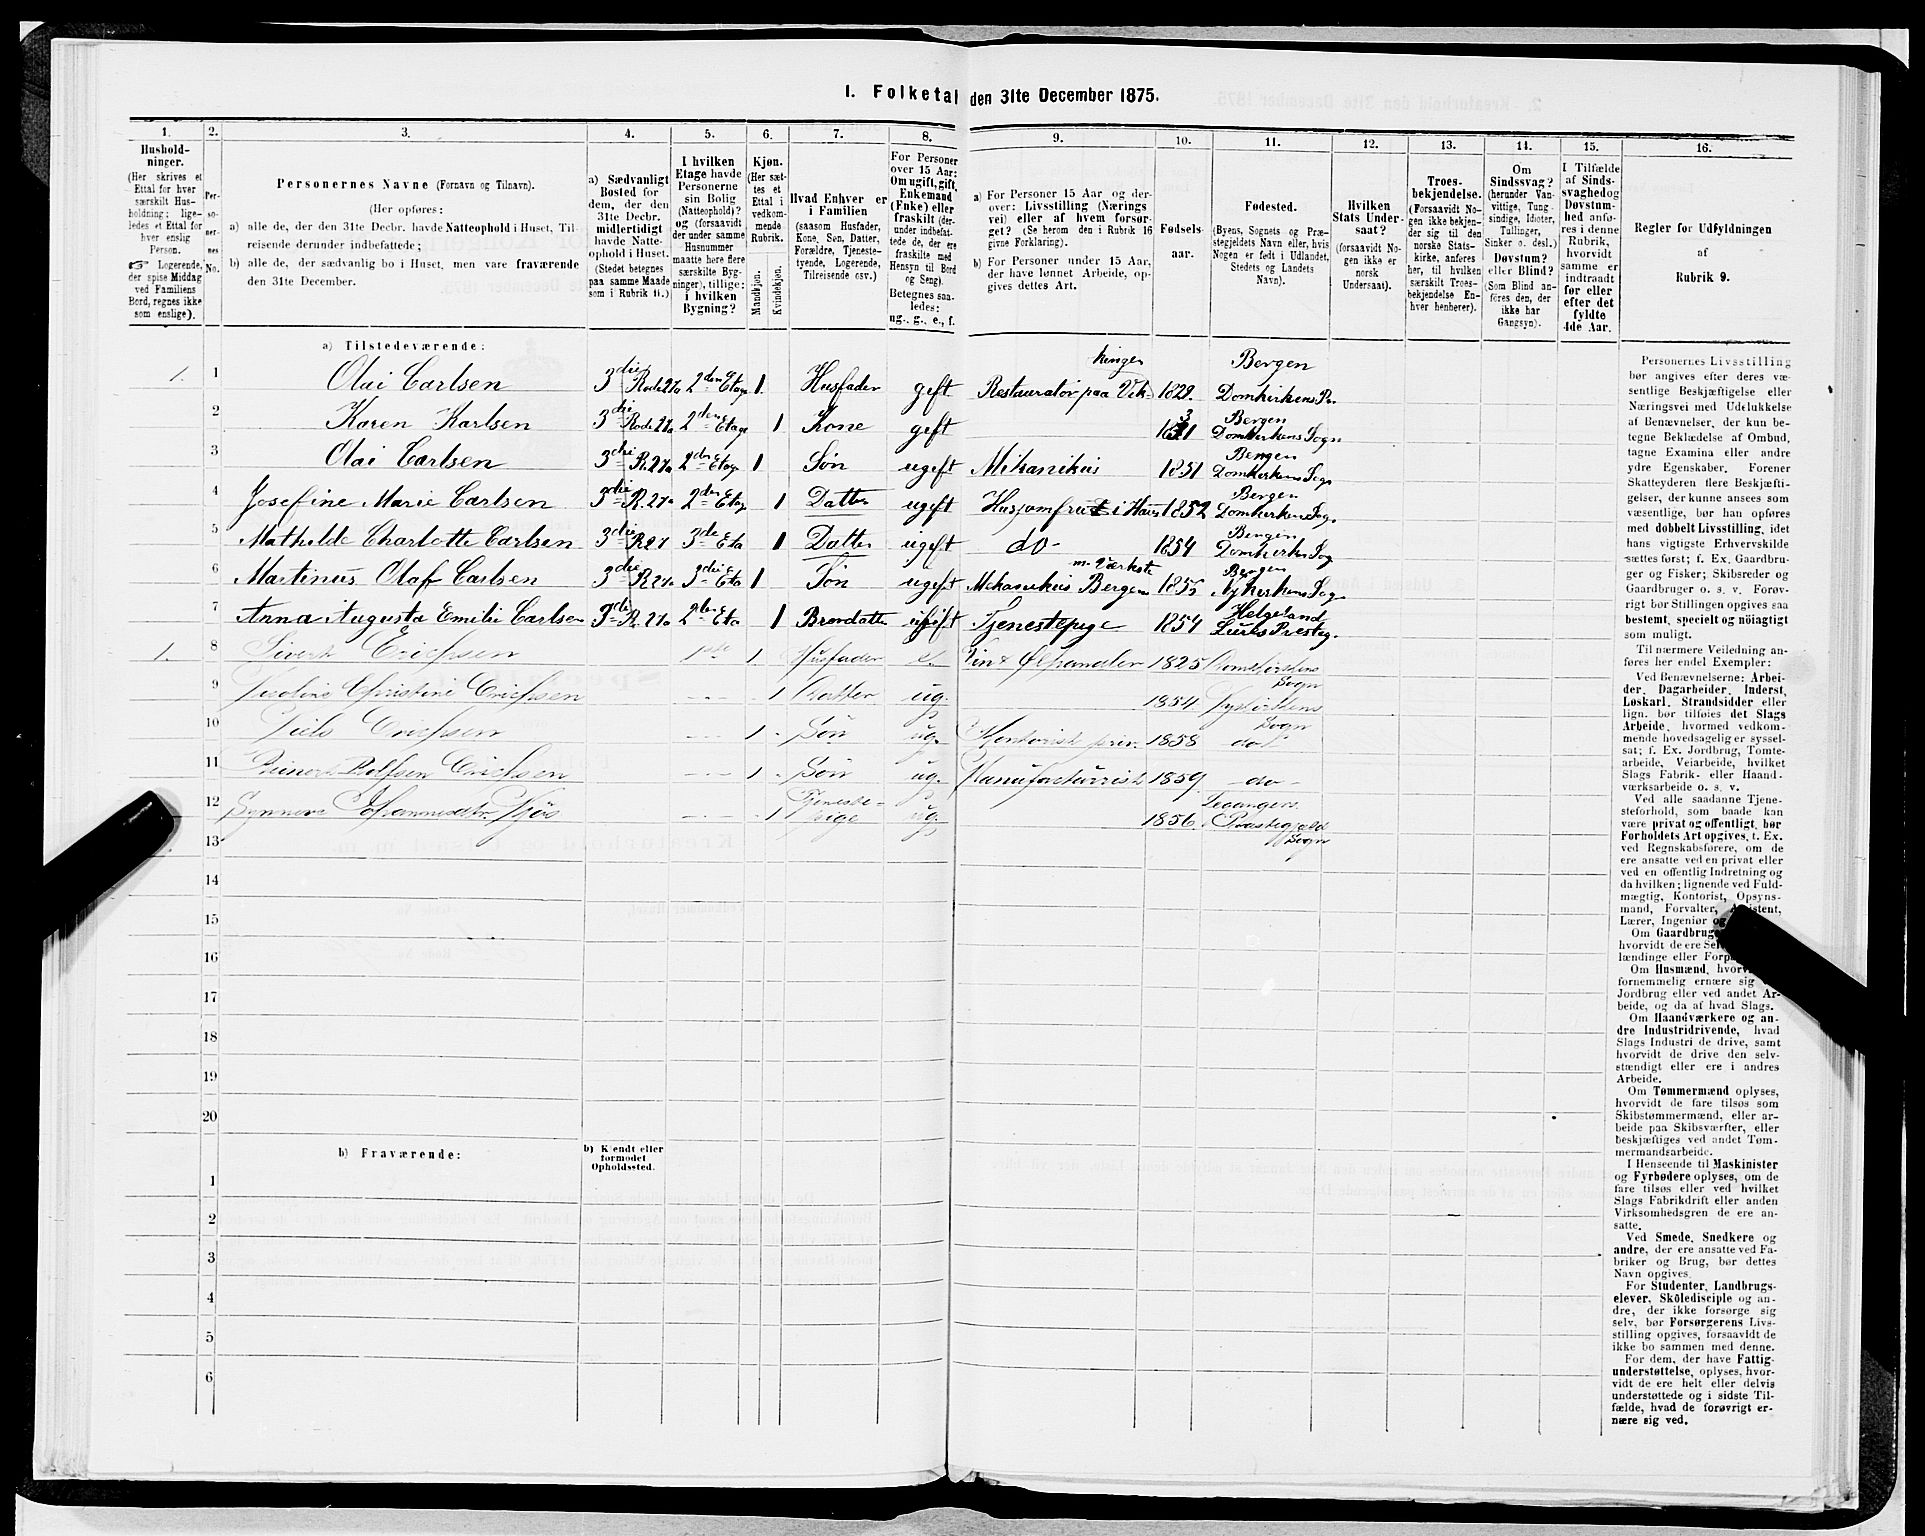 1. Folketal den 31te December 1875.
1. 2. 3. 4. 5. 6. 7. 8. 9. 10. 11. 12. 13. 14. 15. 16.
Hushold-
ninger.
(Her skrives et
Ettal for hver
særskilt Hus-
holdning; lige-
ledes et Ettal for
hver enslig
Person.
☞ Logerende,
der spise Middag
ved Familiens
Bord, regnes ikke
som enslige).
Per-
so-
ner-
nes
No.
Personernes Navne (Fornavn og Tilnavn).
(Her opføres:
a) alle de, der den 31te Decbr. havde Natteophold i Huset, Til-
reisende derunder indbefattede;
b) alle de, der sædvanlig bo i Huset, men vare fraværende
den 31te December.
a) Sædvanligt
Bosted for
dem, der den
31te Decbr.
midlertidigt
havde Natte-
ophold i Huset.
(Stedet betegnes
paa samme Maade
som i Rubrik 11.)
I hvilken
Etage havde
Personerne
sin Bolig
(Natteophold)?
og (forsaavidt
der under samme
Husnummer
maatte høre flere
særskilte Byg-
ninger), tillige:
i hvilken
Bygning?
Kjøn.
(Her sæt-
tes et
Ettal i
vedkom-
mende
Rubrik.
Mandkjøn.
Kvindekjøn.
Hvad Enhver er
i Familien
(saasom Husfader,
Kone, Søn, Datter,
Forældre, Tjeneste-
tyende, Logerende,
Tilreisende osv.)
For Personer
over 15 Aar:
Om ugift, gift,
Enkemand
(Enke) eller
fraskilt (der-
under indbefat-
tede de, der ere
fraskilte med
Hensyn til Bord
og Seng).
Betegnes saa-
ledes:
ug., g., e., f.
a) For Personer 15 Aar og der-
over: Livsstilling (Nærings
vei) eller af hvem forsør-
get? (Se herom den i Rubrik 16
givne Forklaring).
b) For Personer under 15 Aar,
der have lønnet Arbeide, op-
gives dettes Art.
Fødsels-
aar.
Fødested.
(Byens, Sognets og Præ-
stegjeldets Navn eller, hvis
Nogen er født i Udlandet,
Stedets og Landets
Navn).
Hvilken
Stats Under-
saat?
(forsaavidt No-
gen ikke er
norsk
Undersaat).
Troes-
bekjendelse.
(Forsaavidt No-
gen ikke bekjen-
der sig til den
norske Stats-
kirke, anføres
her, til hvilken
særskilt Troes-
bekjendelse En-
hver henhører).
Om
Sindssvag?
(herunder Van-
vittige, Tung-
sindige, Idioter,
Tullinger,
Sinker o. desl.)
Døvstum?
eller Blind?
(Som Blind an-
føres den, der
ikke har
Gangsyn).
I Tilfælde
af Sinds-
svaghed og
Døvstum-
hed anfø-
res i denne
Rubrik,
hvorvidt
samme er
indtraadt
før eller
efter det
fyldte
4de Aar.
Regler for Udfyldningen
af
Rubrik 9.
a) Tilstedeværende:
1. 1 Olai Carlsen 3die Rode 27a 2den Etage 1. Husfader geft Restauratør paa Vikingen 1829. Bergen Domkirkens Pr.
2 Karen Karlsen 3die Rode 27a 2den Etage 1 Kone geft Bergen Domkirkens Sogn
3 Olai Carlsen 3die R. 27a 2den Etage 1 Søn ugeft Mekanikus 1851 Bergen Domkirkens Sogn
4 Josefine Marie Carlsen 3die R. 27a 2den Etage 1 Datter ugeft Husjomfru i Huus 1852 Bergen Domkirkens Sog.
5 Mathilde Charlotte Carlsen 3die R 27 3die Eta 1 Datter ugeft do 1854 Bergen Domkirkens Sog
6 Martinus Olaf Carlsen 3die R. 27a 3die Eta 1 Søn ugeft Mekanikus Bergens m. Værkste 1855 Bergen Nykirkens Sog.
7 Anna Augusta Emilie Carlsen 3die R. 27a 2den Eta 1 Brordatter ugift Tjenestepige 1854 Helgeland Lurøs Presteg.
1. 8 Sivert Erichsen 1ste 1. Husfader e. Vin & Ølhandler 1825 Domkirkens Sogn
9 Nicoline Christine Erichsen 1 Datter ug. 1854. Nykirkens Sogn
10 Niels Erichsen 1 Søn ug. Kontorist priv. 1858 do
11 Reinert Rolfsen Erichsen 1 Søn ug. Manufacturrist 1859 do
12 Synneve Johannesdtr. 1 Tjeneste- pige ug. 1856 Leganger Præstegjeld Sogn
13
14
15
16
17
18
19
20
b) Fraværende:
b) Kjendt eller
formodet
Opholdssted.
1
2
3
4
5
6
Personernes Livsstilling
bør angives efter deres væ-
sentlige Beskjæftigelse eller
Næringsvei med Udelukkelse
af Benævnelser, der kun be-
tegne Beklædelse af Ombud,
tagne Examina eller andre
ydre Egenskaber. Forener
Skatteyderen flere Beskjæfti-
gelser, der kunne ansees som
væsentlige, bør han opføres
med dobbelt Livsstilling, idet
hans vigtigste Erhvervskilde
sættes først; f. Ex. Gaardbru-
ger og Fisker; Skibsreder og
Gaardbruger o. s. v. Forøv-
rigt bør Stillingen opgives saa
bestemt, specielt og nöiagtigt
som muligt.
Til nærmere Veiledning an-
føres her endel Exempler:
Ved Benævnelserne: Arbei-
der, Dagarbeider, Inderst,
Løskarl, Strandsidder eller
lign. bør tilføies det Slags
Arbeide, hvormed vedkom-
mende hovedsagelig er syssel-
sat; f. Ex. Jordbrug, Tomte-
arbeide, Veiarbeide, hvilket
Slags Fabrik- eller Haand-
værksarbeide o. s. v.
Ved alle saadanne Tjene-
steforhold, som baade kan
være privat og offentligt, bør
Forholdets Art opgives, t. Ex.
ved Regnskabsførere, om de
ere ansatte ved en privat eller
ved en offentlig Indretning og
da hvilken; lignende ved Fuld-
mægtig, Kontorist, Opsyns-
mand, Forvalter, Assistent,
Lærer, Ingeniør og
Om Gaardbrug
hvorvidt de ere
lændinge eller
Om Husmænd,
fornemmelig ernære sig
Jordbrug eller ved andet Ar-
beide, og da af hvad Slags.
Om Haandværkere og an-
dre Industridrivende, hvad
Slags Industri de drive, samt
hvorvidt de drive den selv-
stændigt eller ere i andres
Arbeide.
Om Tømmermænd oplyses,
hvorvidt de fare tilsøs som
Skibstømmermænd, eller ar-
beide paa Skibsværfter, eller
beskjæftiges ved andet Tøm-
mermandsarbeide.
I Henseende til Maskinister
og Fyrbødere oplyses, om de
fare tilsøs eller ved hvilket
Slags Fabrikdrift eller anden
Virksomhedsgren de ere an-
satte.
Ved Smede, Snedkere og
andre, der ere ansatte ved Fa-
briker og Brug, bør dettes
Navn opgives.
For Studenter, Landbrugs-
elever, Skoledisciple og an-
dre, der ikke forsørge sig
selv, bør Forsørgerens Livs-
stilling opgives, forsaavidt de
ikke bo sammen med denne.
For dem, der have Fattig-
understøttelse, oplyses, hvor-
vidt de ere helt eller delvis
understøttede og i sidste Til-
fælde, hvad de forøvrigt er-
nære sig ved.